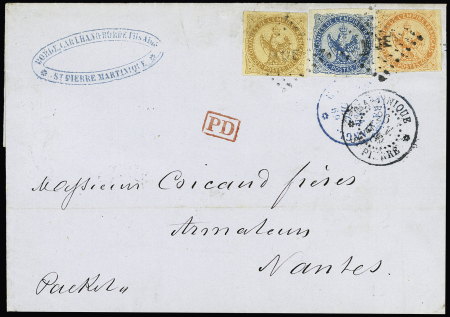 ST PIERRE MARTINIQUE
PD
MARTINIQUE
PIERRE
Monsieur Coicaud frères
Armateurs
Nantes.
Packet"